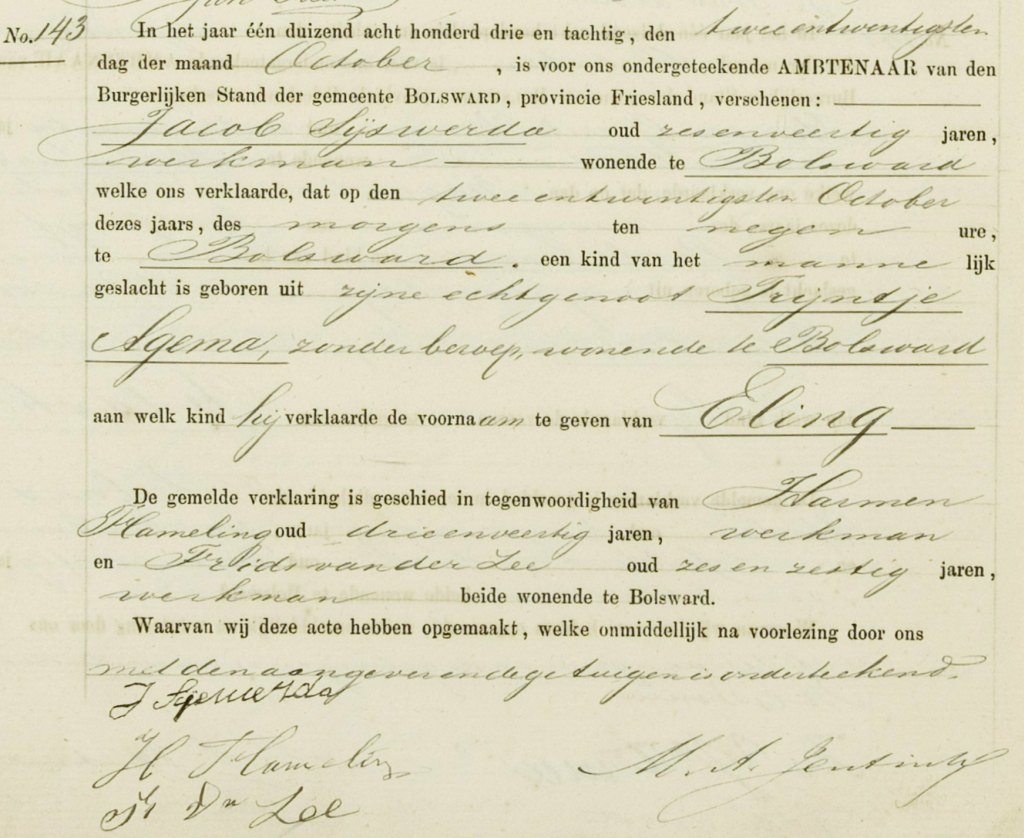 No. 143 In het jaar één duizend acht honderd drie en tachtig, den twee en twintigsten
dag der maand October, is voor ons ondergeteekende AMBTENAAR van den
Burgerlijken Stand der gemeente BOLSWARD, provincie Friesland, verschenen:
Jacob Sijswerda oud zesenveertig jaren,
werkman wonende te Bolsward
welke ons verklaarde, dat op den twee entwintigsten October
dezes jaars, des morgens ten negen ure,
te Bolsward. een kind van het manne lijk
geslacht is geboren uit zijne echtgenoot Trijntje
Agema, zonder beroep, wonende te Bolsward
aan welk kind hij verklaarde de voornaam te geven van Eling
De gemelde verklaring is geschied in tegenwoordigheid van Harmen
Hameling oud drieenveertig jaren, werkman
en van der Zee oud zes en zestig jaren,
werkman beide wonende te Bolsward.
Waarvan wij deze acte hebben opgemaakt, welke onmiddellijk na voorlezing door ons
met den aangever en de getuigen is onderteekend.
J Sijswerda
H Hameling
Zee
M. A. Jentink